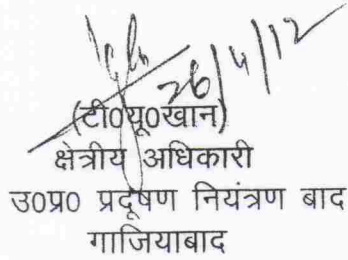 26/4/12
(टी0यू0खान)
क्षेत्रीय अधिकारी
उ0प्र0 प्रदूषण नियंत्रण बाद
गाजियाबाद